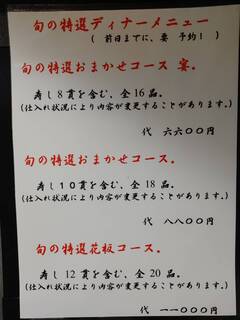 旬の特選ディナーメニュー
( 前日までに、要 予約! )
旬の特選おまかせコース 宴。
寿し8貫を含む、全16品。
(仕入れ状況により内容が変更することがあります。)
代 六六〇〇円
旬の特選おまかせコース。
寿し10貫を含む、全18品。
(仕入れ状況により内容が変更することがあります。)
代 八八〇〇円
旬の特選花板コース。
寿し12貫を含む、全20品。
(仕入れ状況により内容が変更することがあります。)
代 一一〇〇〇円